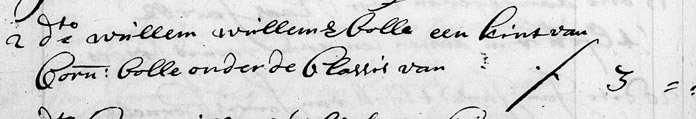 2 dto willem willemse bolle een kint van
Corn: bolle onder de Classis van / 3 = :